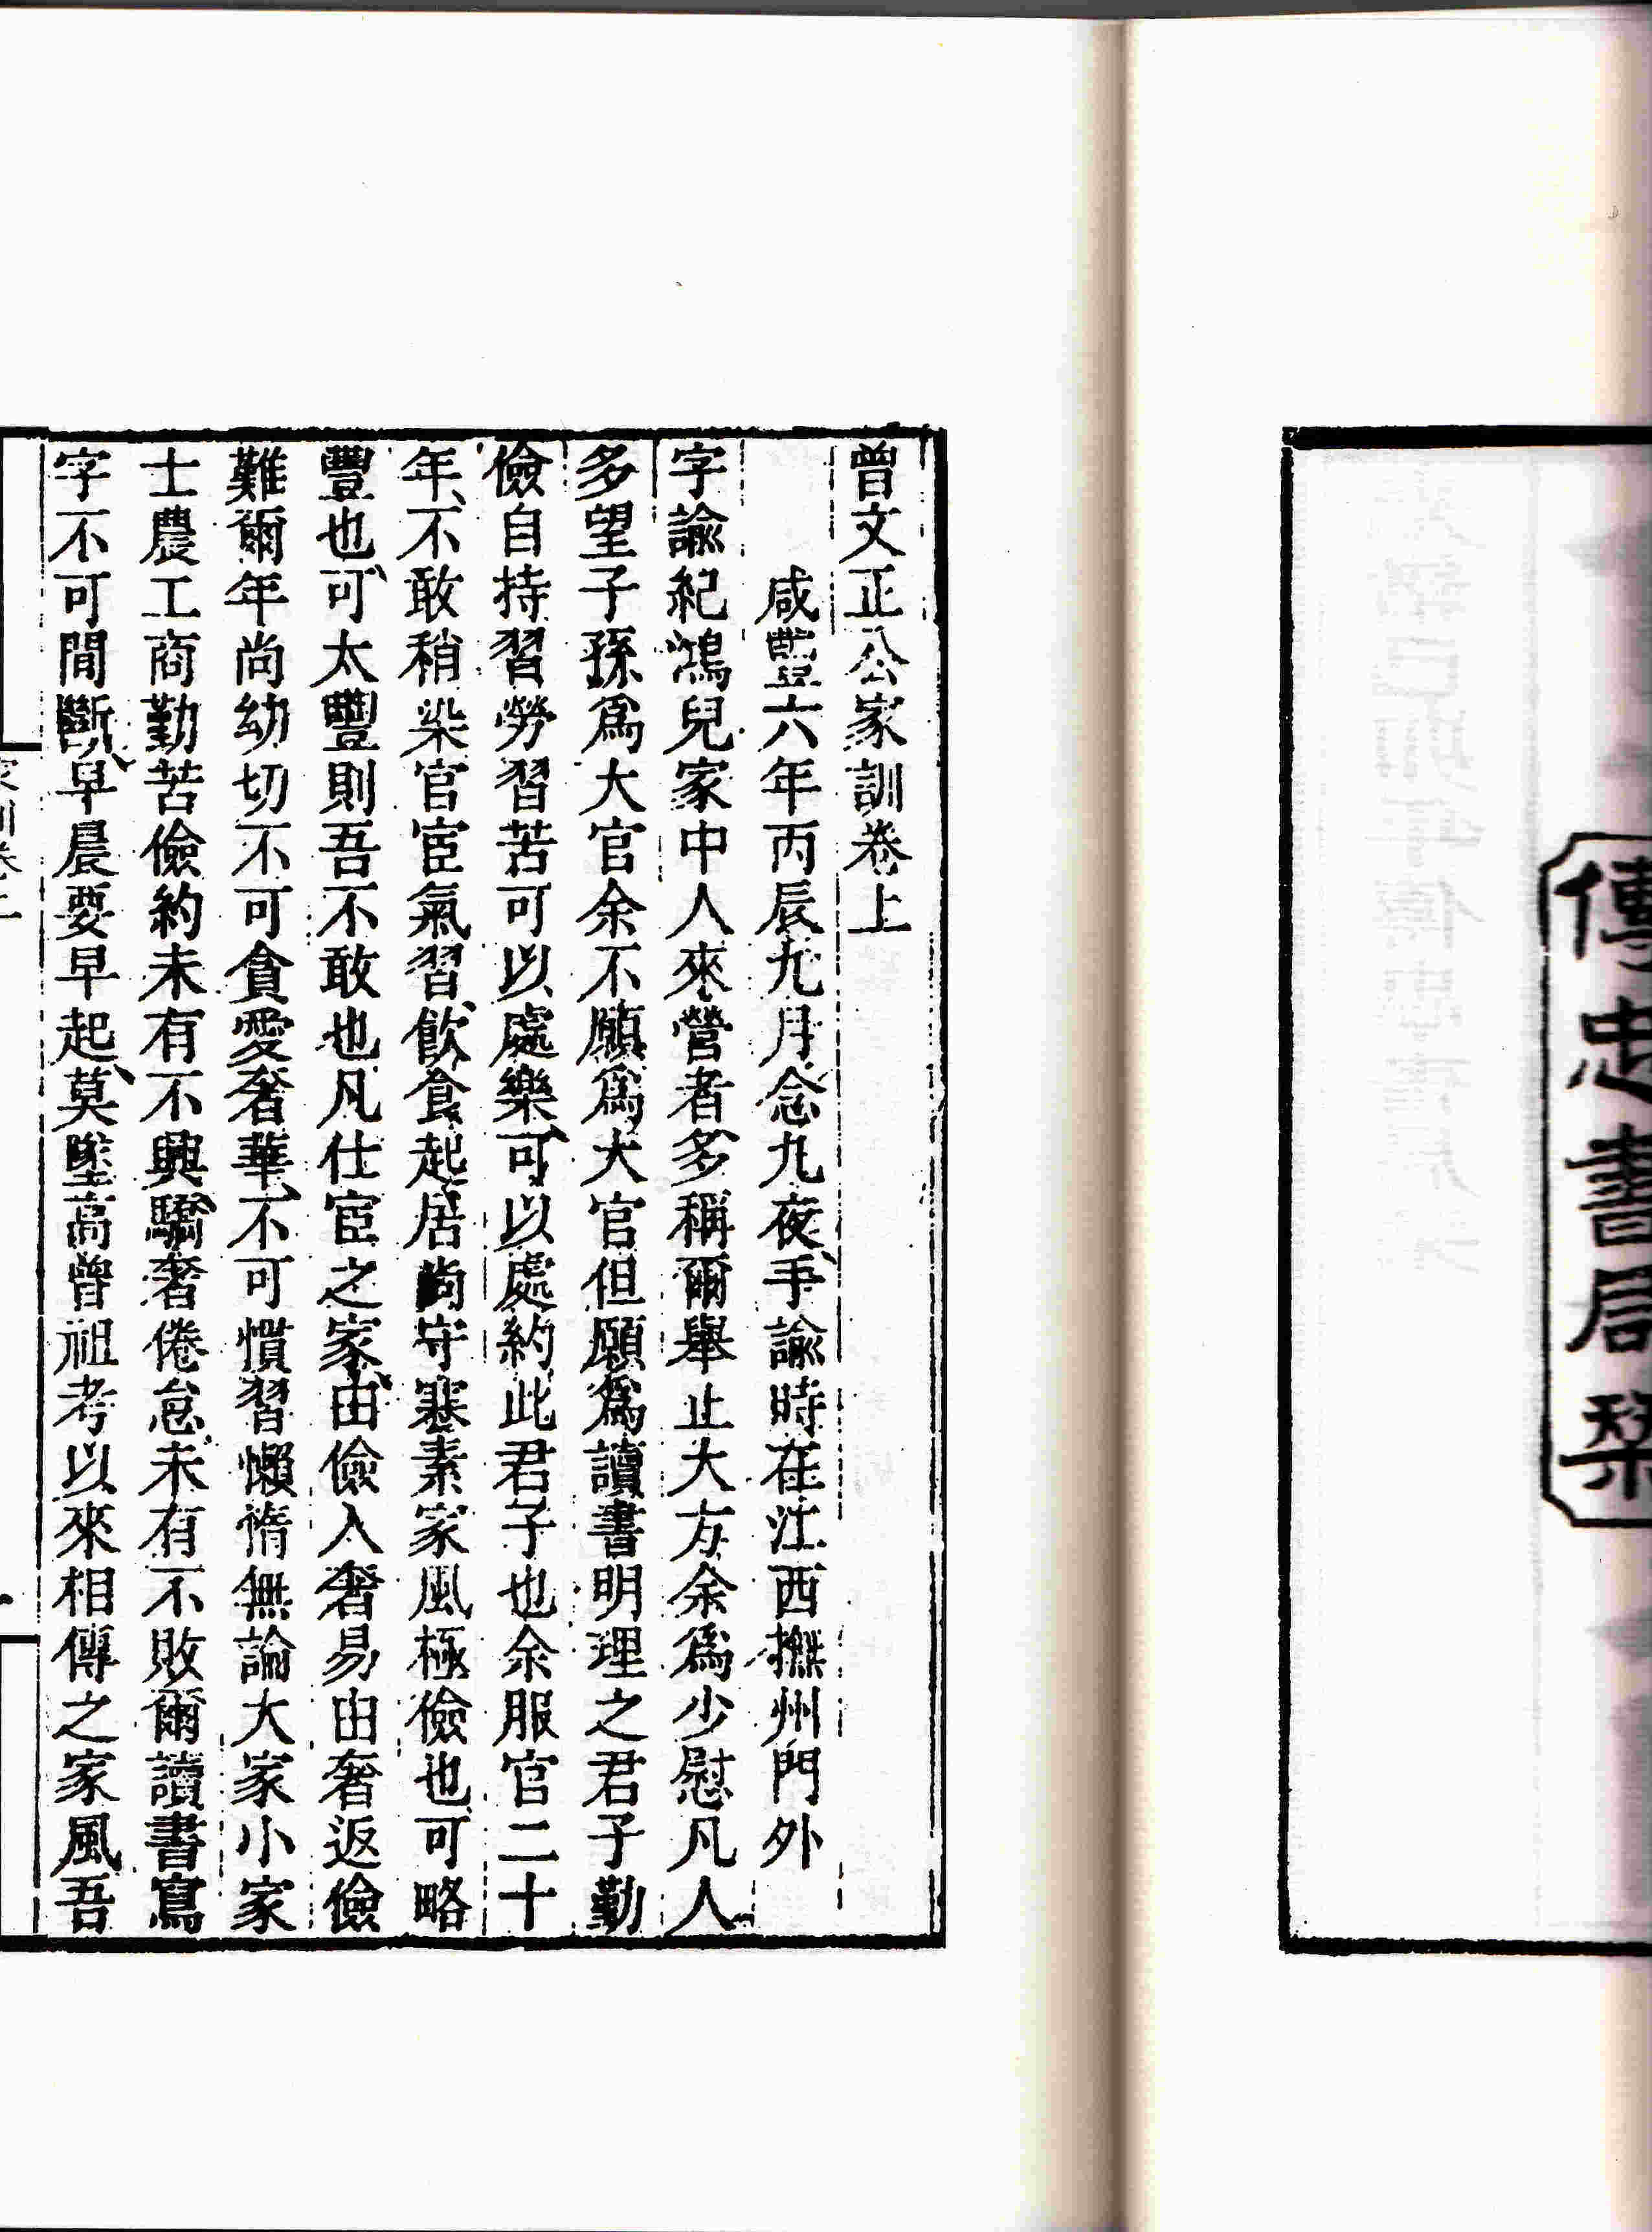 傳忠書局栞
曾文正公家訓卷上
咸豐六年丙辰九月念九夜、手諭時在江西撫州門外
字諭紀鴻兒家中人來營者多稱爾舉止大方余爲少慰凡人
多望子孫爲大官余不願爲大官但願爲讀書明理之君子勤
儉自持習勞習苦可以處樂、可以處約此君子也余服官二十
年、不敢稍染官宦氣習、飲食起居尚守寒素家風極儉也可略
豐也可、太豐則吾不敢也凡仕宦之家、由儉入奢易由奢返儉
難爾年尚幼切不可貪愛奢華、不可慣習懶惰無論大家小家
士農工商勤苦儉約未有不興驕奢倦怠未有不敗爾讀書寫
字不可閒斷、早晨要早起、莫墜高曾祖考以來相傳之家風吾
家訓卷上